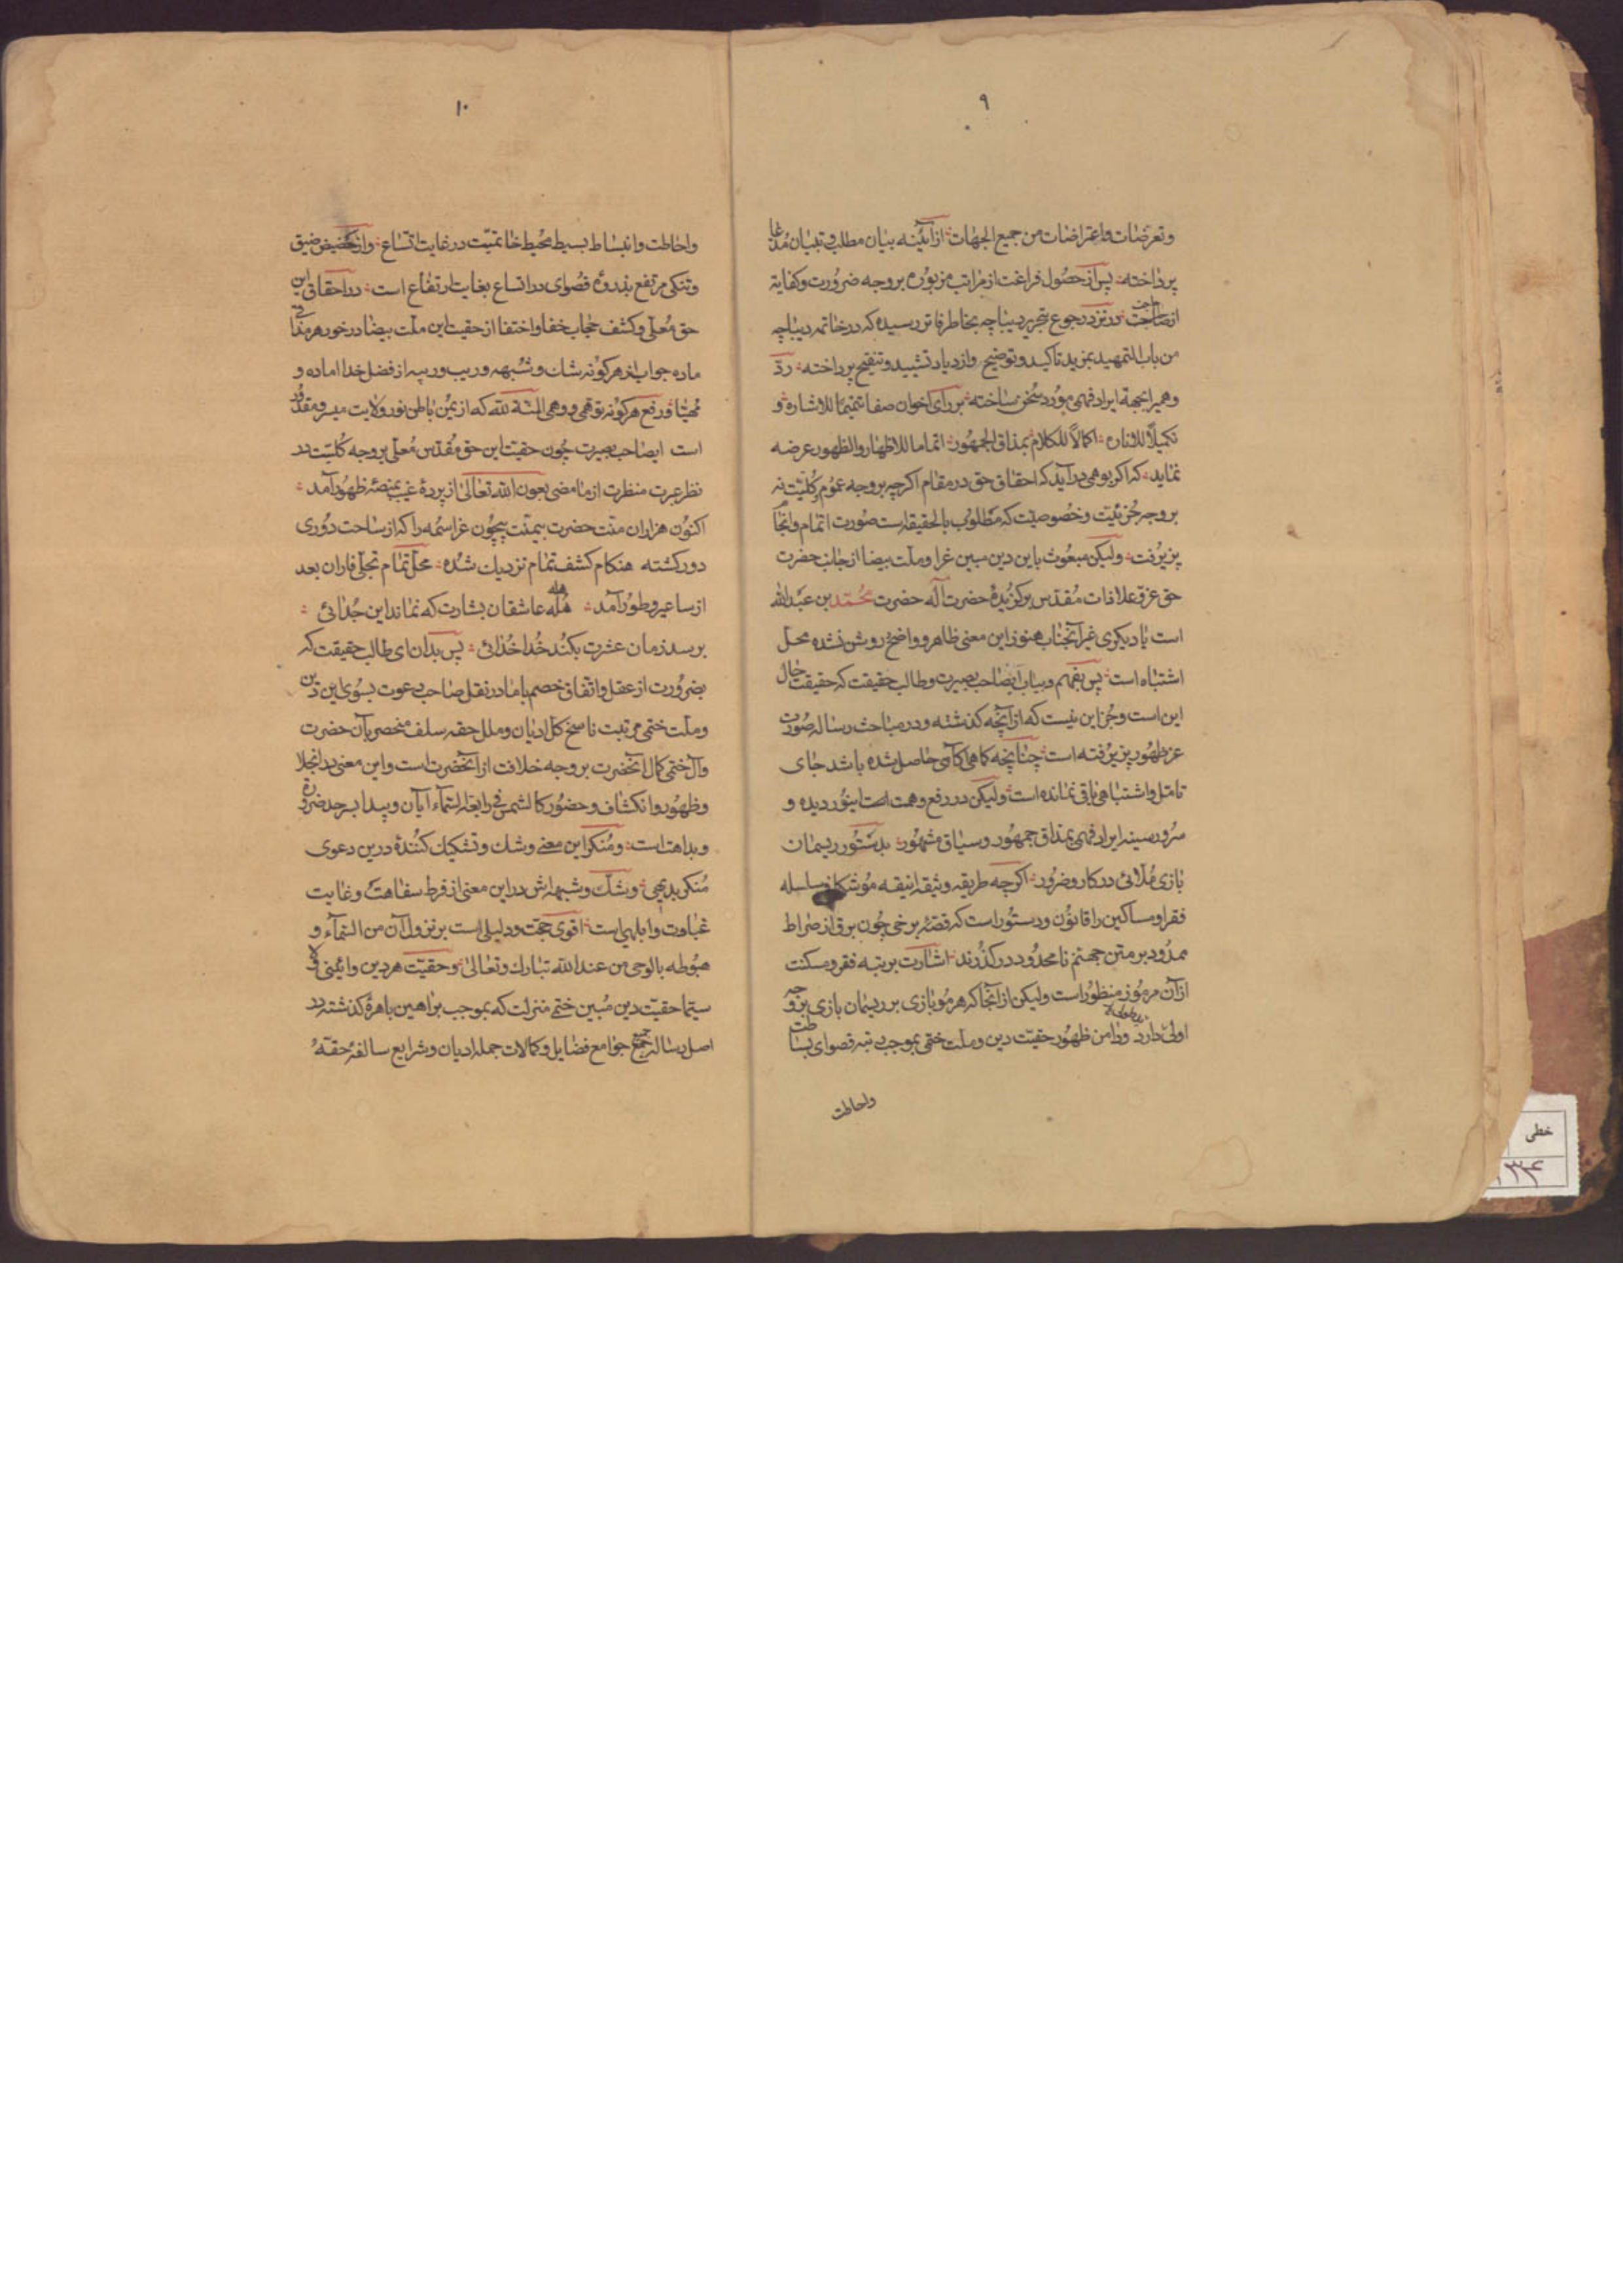 ۹
وتعرضات واعتراضات من جمیع الجهات از آئینه بیان مطلب و تبیان مدعا
پرداخته پس از حصول فراغت از مراتب مزبوره بر وجه ضرورت و کفایة
از صاحب در نزد رجوع بتحریر دیباچه بخاطر فاتر رسیده که در خاتمه دیباچه
من باب التمهید بمزید تاکید و توضیح وازدیاد تشیید و تنقیح پرداخته ردّ
وهم را بجهة ایراد فهمی مورد سخن ساخته بر رای اخوان صفا تتمیما للاشاره و
تکمیلاً للاناره اکمالاً للکلام بمذاق الجمهور اتماما للاظهار والظهور عرضه
نماید که اکر بوهمی در آید که احقاق حق در مقام اکرچه بر وجه عموم و کلیّت نه
بر وجه جزئیّت وخصوصیّت که مطلوب بالحقیقه است صورت اتمام وانجام
پزیرفت ولیکن مبعوث باین دین مبین غرا وملت بیضا از جانب حضرت
حق عزّ و علا ذات مقدس برکزیدهٔ حضرت آله حضرت محمّد بن عبدالله
است یا دیکری غیر آنجناب هنوز این معنی ظاهر و واضح و روشن نشده محل
اشتباه است پس بفهم و بیاب ایصاحب بصیرت وطالب حقیقت که حقیقت حال
این است وجز این نیست که از آنچه کذشته و در مباحث رساله صورت
عز ظهور پزیرفته است چنانچه کاهی اکاهی حاصل شده باشد جای
تامل واشتباهی باقی نمانده است ولیکن در رفع وهمت ایصاحب نور دیده و
سرور سینه ایراد فهمی بمذاق جمهور وسیاق مشهور بدستور ریسمان
بازی ملائی در کار و ضرور اکرچه طریقه وثیقه انیقه موشکاف سلسله
فقرا و مساکین را قانون و دستور است که قصّهٔ برخی چون برق از صراط
ممدود بر متن جهنم نا محدود در کذرند اشارت بر تبه فقر و مسکنت
از آن مرموز منظور است ولیکن از آنجا که هر مو بازی بر ریسمان بازی بر وجه
اولی دارد ودامن ظهور حقیّت دین وملت ختمی بموجب رتبه قصوای بساطت
واحاطت
۱۰
واحاطت وانبساط بسیط محیط خاتمیّت در غایت اتساع واز حضیض ضیق
وتنکی مرتفع بذروهٔ قصوای در اتساع بغایت ارتفاع است در احقاق این
حق معلّی و کشف حجاب خفا واختفا از حقیت این ملت بیضا در خور هر مذاقی
ماده جواب از هر کونه شک و شبهه و ریب و ریبه از فضل خدا اماده و
مهیّا و رفع هر کونه توهمی و وهمی المنّة لله که از یمن باطن نور ولایت میسر و مقدور
است ایصاحب بصیرت چون حقیت این حق مقدس معلّی بر وجه کلیّت در
نظر عبرت منظرت از ما مضی بعون الله تعالی از پردهٔ غیب بمنصّهٔ ظهور آمد
اکنون هزاران منّت حضرت بیمنّت بیچون عز اسمه را که از ساحت دوری
دور کشته هنکام کشف تمام نزدیک شده محل تمام تجلّی فاران بعد
از ساعیر و طور آمد هله عاشقان بشارت که نماند این جدائی
برسد زمان عشرت بکند خدا خدائی پس بدان ای طالب حقیقت که
بضرورت از عقل واتفاق خصم با ما در نقل صاحب دعوت بسوی این دین
وملت ختمی مرتبت ناسخ کل ادیان وملل حقه سلف منحصر بآن حضرت
وآل ختمی کمال آنحضرت بر وجه خلافت از آنحضرت است واین معنی در انجلا
وظهور وانکشاف وحضور کالشمس فی رابعة السّماء آبان وپیدا بسرحد ضرورة
و بداهت است ومنکر این معنی وشک وتشکیک کنندهٔ درین دعوی
منکر بدیهی وشک وشبهه اش در این معنی از فرط سفاهت وغایت
غباوت وابلهی است اقوی حجّت ودلیلی است بر نزول آن من السّماء و
هبوطه بالوحی من عند الله تبارک وتعالی وحقیّت هر دین وآئینی ولا
سیّما حقیّت دین مبین ختمی منزلت که بموجب براهین باهرهٔ کذشته در
اصل رساله جمیع جوامع فضایل وکمالات جمله ادیان وشرایع سالفهٔ حقّه
خطی